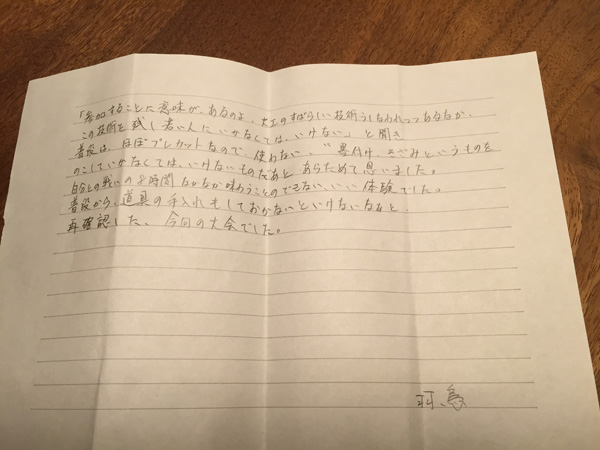 「参加することに意味が、あるのよ、大工のすばらしい技術うしなわれつつあるなか、
この技術を残し若い人にいかなくては、いけない」と聞き
普段は、ほぼプレカットなので、使わない、"墨付け、きざみというものを
のこしていかなくては、いけないものだあと、あらためて思いました。
自分との戦いの8時間なかなか味わうことのできない、いい体験でした。
普段から、道具の手入れもしておかないといけないなぁと、
再確認した、今回の大会でした。